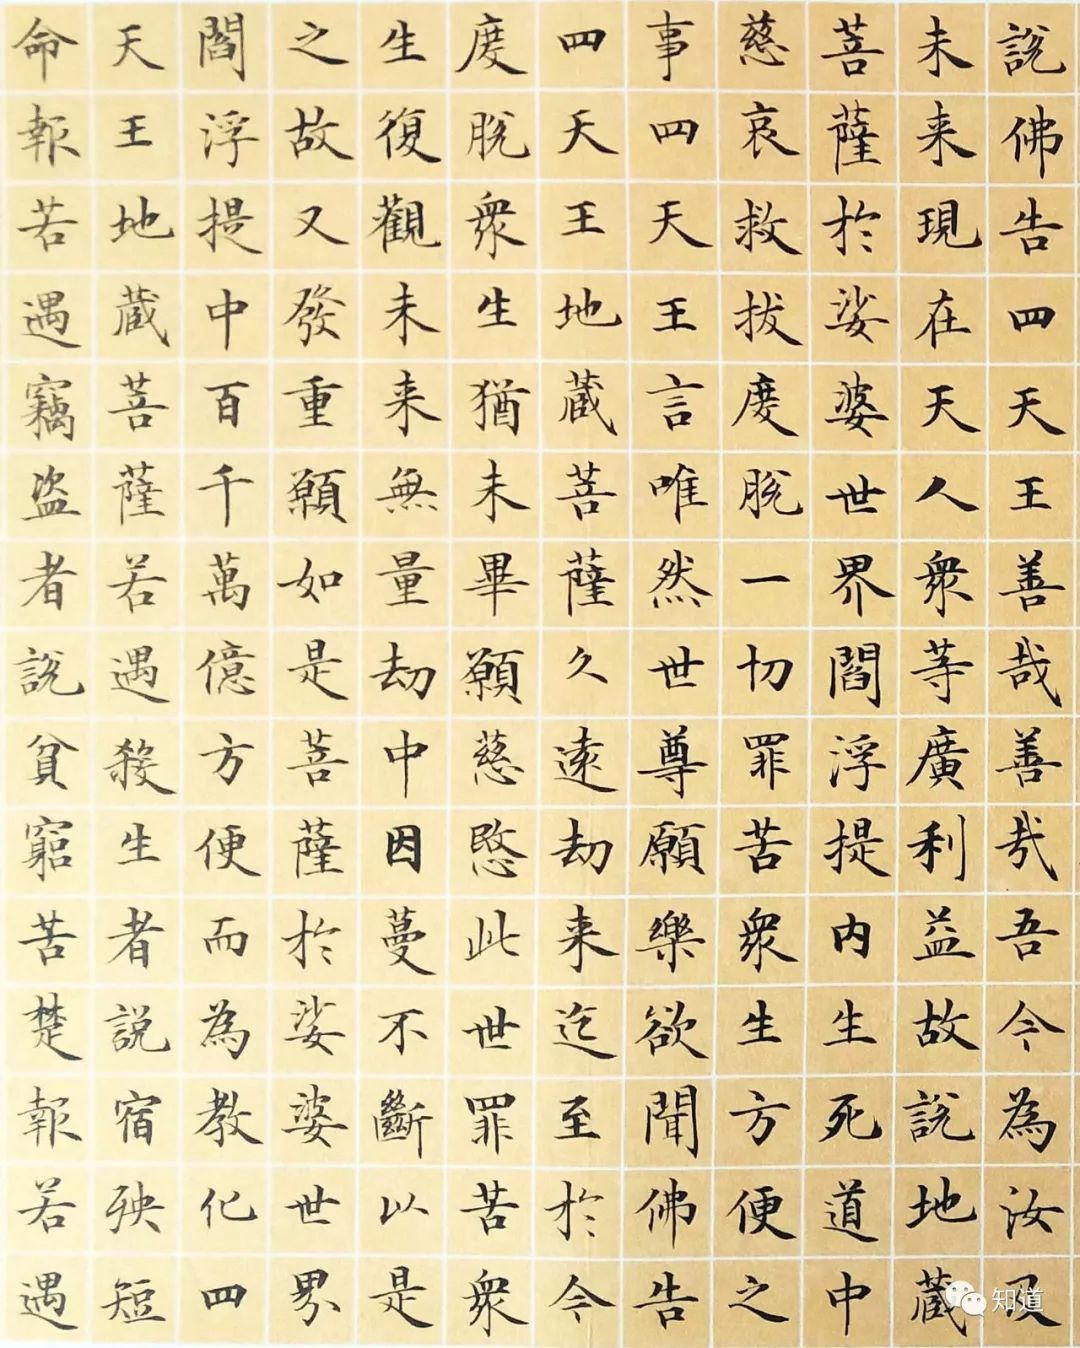 說佛告四天王善哉善哉吾今為汝及
未来現在天人衆等廣利益故說地蔵
菩薩於娑婆世界閻浮提内生死道中
慈哀救拔度脫一切罪苦衆生方便之
事四天王言唯然世尊願樂欲聞佛告
四天王地蔵菩薩久遠劫来迄至於今
度脫衆生猶未畢願慈愍此世罪苦衆
生復觀未来無量劫中因蔓不斷以是
之故又發重願如是菩薩於娑婆世界
閻浮提中百千萬億方便而為教化四
天王地蔵菩薩若遇殺生者説宿殃短
命報若遇竊盗者說貧窮苦楚報若遇
知道